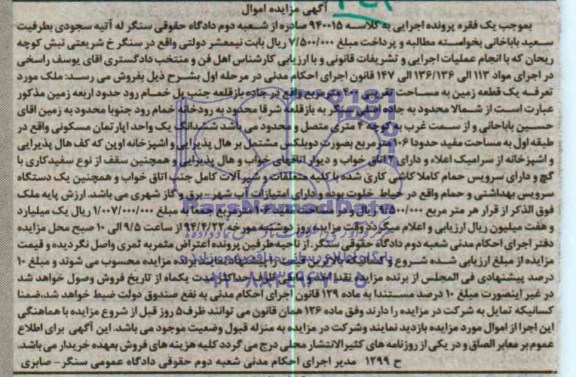 آگهی مزایده اموال
بموجب یک فقره پرونده اجرایی به کلاسه ۹۴۰۰۱۵ صادره از شعبه دوم دادگاه حقوقی سنگر له آتیه سجودی بطرفیت
سعید باباخانی بخواسته مطالبه و پرداخت مبلغ ۷/۵۰۰/۰۰۰ ریال بابت نیمعشر دولتی واقع در سنگر خ شریعتی نبش کوچه
ریحان که با انجام عملیات اجرایی و تشریفات قانونی و با ارزیابی کارشناس اهل فن و منتخب دادگستری اقای یوسف راسخی
در اجرای مواد ۱۱۳ الی ۱۳۶/۱۳۶ الی ۱۴۷ قانون اجرای احکام مدنی در مرحله اول بشرح ذیل بفروش می رسد: ملک مورد
تعرفه یک قطعه زمین به مساحت تقریبی ۴۰۰ مترمربع واقع در جاده بازقلعه جنب پل خمام رود حدود اربعه زمین مذکور
عبارت است از شمالا محدود به جاده اصلی سنگر به بازقلعه شرقا محدود به رودخانه خمام رود جنوبا محدود به زمین اقای
حسین باباخانی و از سمت غرب به کوچه ۴ متری متصل و محدود می باشد ششدانگ یک واحد اپارتمان مسکونی واقع در
طبقه اول به مساحت مفید حدودا ۱۰۶ مترمربع بصورت دوبلکس مشتمل بر هال پذیرایی و اشپزخانه اوپن که کف هال پذیرایی
و اشپزخانه از سرامیک اعلاء و دارای ۳ اتاق خواب و دیوار اتاقهای خواب و هال پذیرایی و همچنین سقف از نوع سفیدکاری با
گچ و دارای سرویس حمام کاملا کاشی کاری شده با کلیه متعلقات و شیر آلات کامل جنب اتاق خواب و همچنین یک دستگاه
سرویس بهداشتی و حمام واقع در حیاط خلوت بوده و دارای امتیازات آب شهری-برق و گاز شهری می باشد. ارزش پایه ملک
فوق الذکر از قرار هر متر مربع ۹/۵۰۰/۰۰۰ ریال و در مساحت مفید ۱۰۶ مترمربع جمعا به مبلغ ۱/۰۰۷/۰۰۰/۰۰۰ ریال یک میلیارد
و هفت میلیون ریال ارزیابی و اعلام میگردد وقت مزایده روز دوشنبه مورخه ۹۴/۴/۲۲ از ساعت ۹/۵ الی ۱۰ صبح محل مزایده
دفتر اجرای احکام مدنی شعبه دوم دادگاه حقوقی سنگر. از ناحیه طرفین پرونده اعتراض مثمربه ثمری واصل نگردیده و قیمت
مزایده از مبلغ ارزیابی شده شروع و کسانیکه بالاترین قیمت را پیشنهاد دهند برنده مزایده محسوب می شوند و مبلغ ۱۰
درصد پیشنهادی فی المجلس از برنده مزایده نقدا اخذ و مابقی ظرف حداکثر مدت یکماه از تاریخ فروش وصول خواهد شد
در غیر اینصورت مبلغ ۱۰ درصد مستندا به ماده ۱۲۹ قانون اجرای احکام مدنی به نفع صندوق دولت ضبط خواهد شد.ضمنا
کسانیکه تمایل به شرکت در مزایده را دارند وفق ماده ۱۲۶ همان قانون می توانند ظرف ۵ روز قبل از شروع مزایده با هماهنگی
این اجرا از اموال مورد مزایده بازدید نمایند وشرکت در مزایده به منزله قبول وضعیت موجود می باشد. این آگهی برای اطلاع
عموم بر معابر الصاق و در یکی از روزنامه های کثیرالانتشار محلی درج می گردد کلیه هزینه های فروش بعهده خریدار می باشد.
ح ۱۲۹۹ مدیر اجرای احکام مدنی شعبه دوم حقوقی دادگاه عمومی سنگر- صابری